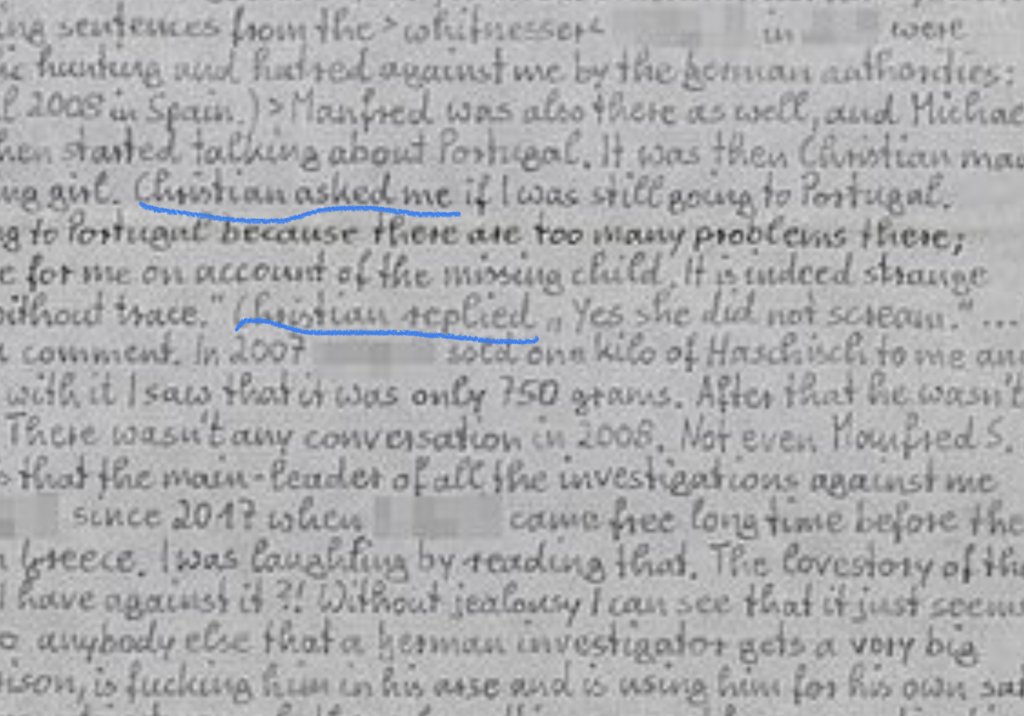 ing sentences from the >whitnesser< in were
ic hunting and hatred against me by the german authorities:
l 2008 in Spain.) >Manfred was also there as well, and Michae
hen started talking about Portugal. It was then Christian mad
ng girl. Christian asked me if I was still going to Portugal.
g to Portugal because there are too many problems there;
e for me on account of the missing child. It is indeed strange
without trace." Christian replied „Yes she did not scream."...
comment. In 2007 sold one kilo of Haschisch to me an
with it I saw that it was only 750 grams. After that he wasn't
There wasn't any conversation in 2008. Not even Manfred S.
> that the main-leader of all the investigations against me
since 2017 when came free long time before the
Greece. I was laughting by reading that. The lovestory of th
I have against it ?! Without jealousy I can see that it just seem
o anybody else that a german investigator gets a very big
ison, is fucking him in his arse and is using him for his own sat